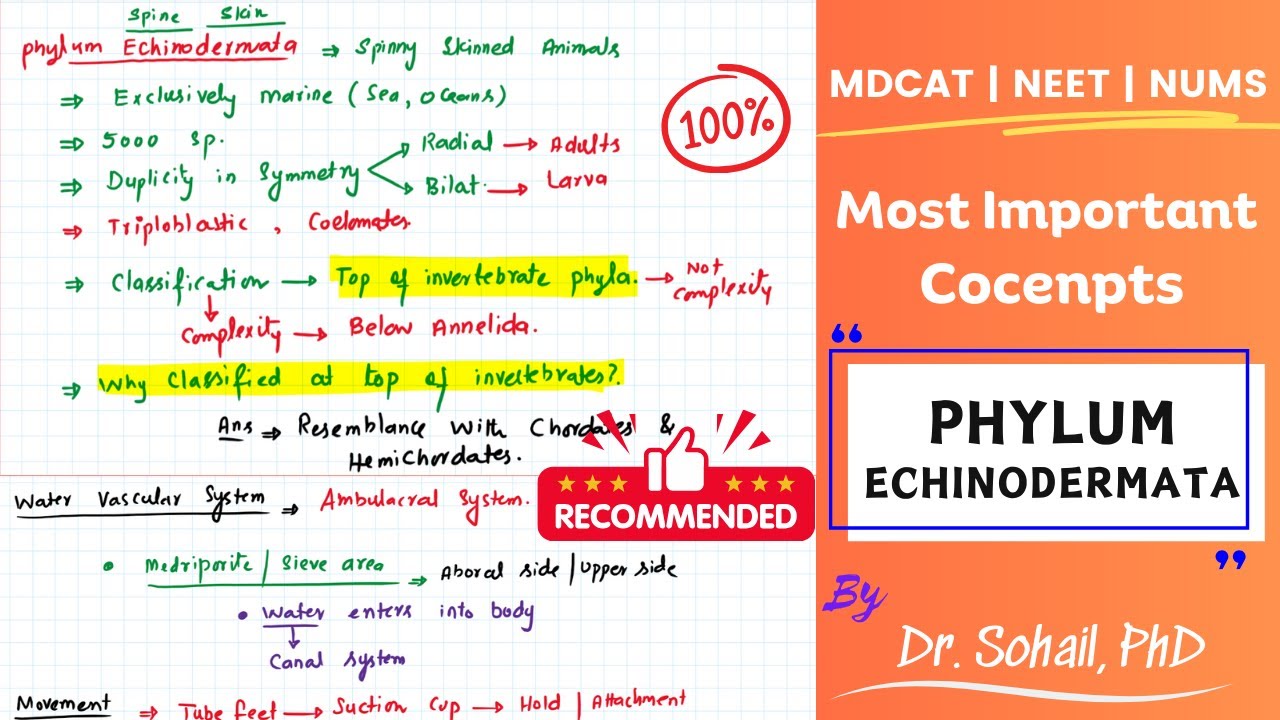 Spine Skin
phylum Echinodermata ⇒ Spinny Skinned Animals
⇒ Exclusively marine (Sea, Oceans)
⇒ 5000 sp.
⇒ Duplicity in Symmetry
Radial → Adults
Bilat. → Larva
⇒ Triploblastic, Coelomates.
⇒ Classification → Top of invertebrate phyla. → Not complexity
Complexity → Below Annelida.
⇒ Why Classified at top of invertebrates?
Ans ⇒ Resemblance with Chordates &
HemiChordates.
Water Vascular System ⇒ Ambulacral System.
• Medriporite / Sieve area ⇒ Aboral side / Upper side
• Water enters into body
Canal system
Movement ⇒ Tube feet → Suction Cup → Hold / Attachment
100%
RECOMMENDED
MDCAT | NEET | NUMS
Most Important
Cocenpts
“
PHYLUM
ECHINODERMATA
”
By
Dr. Sohail, PhD